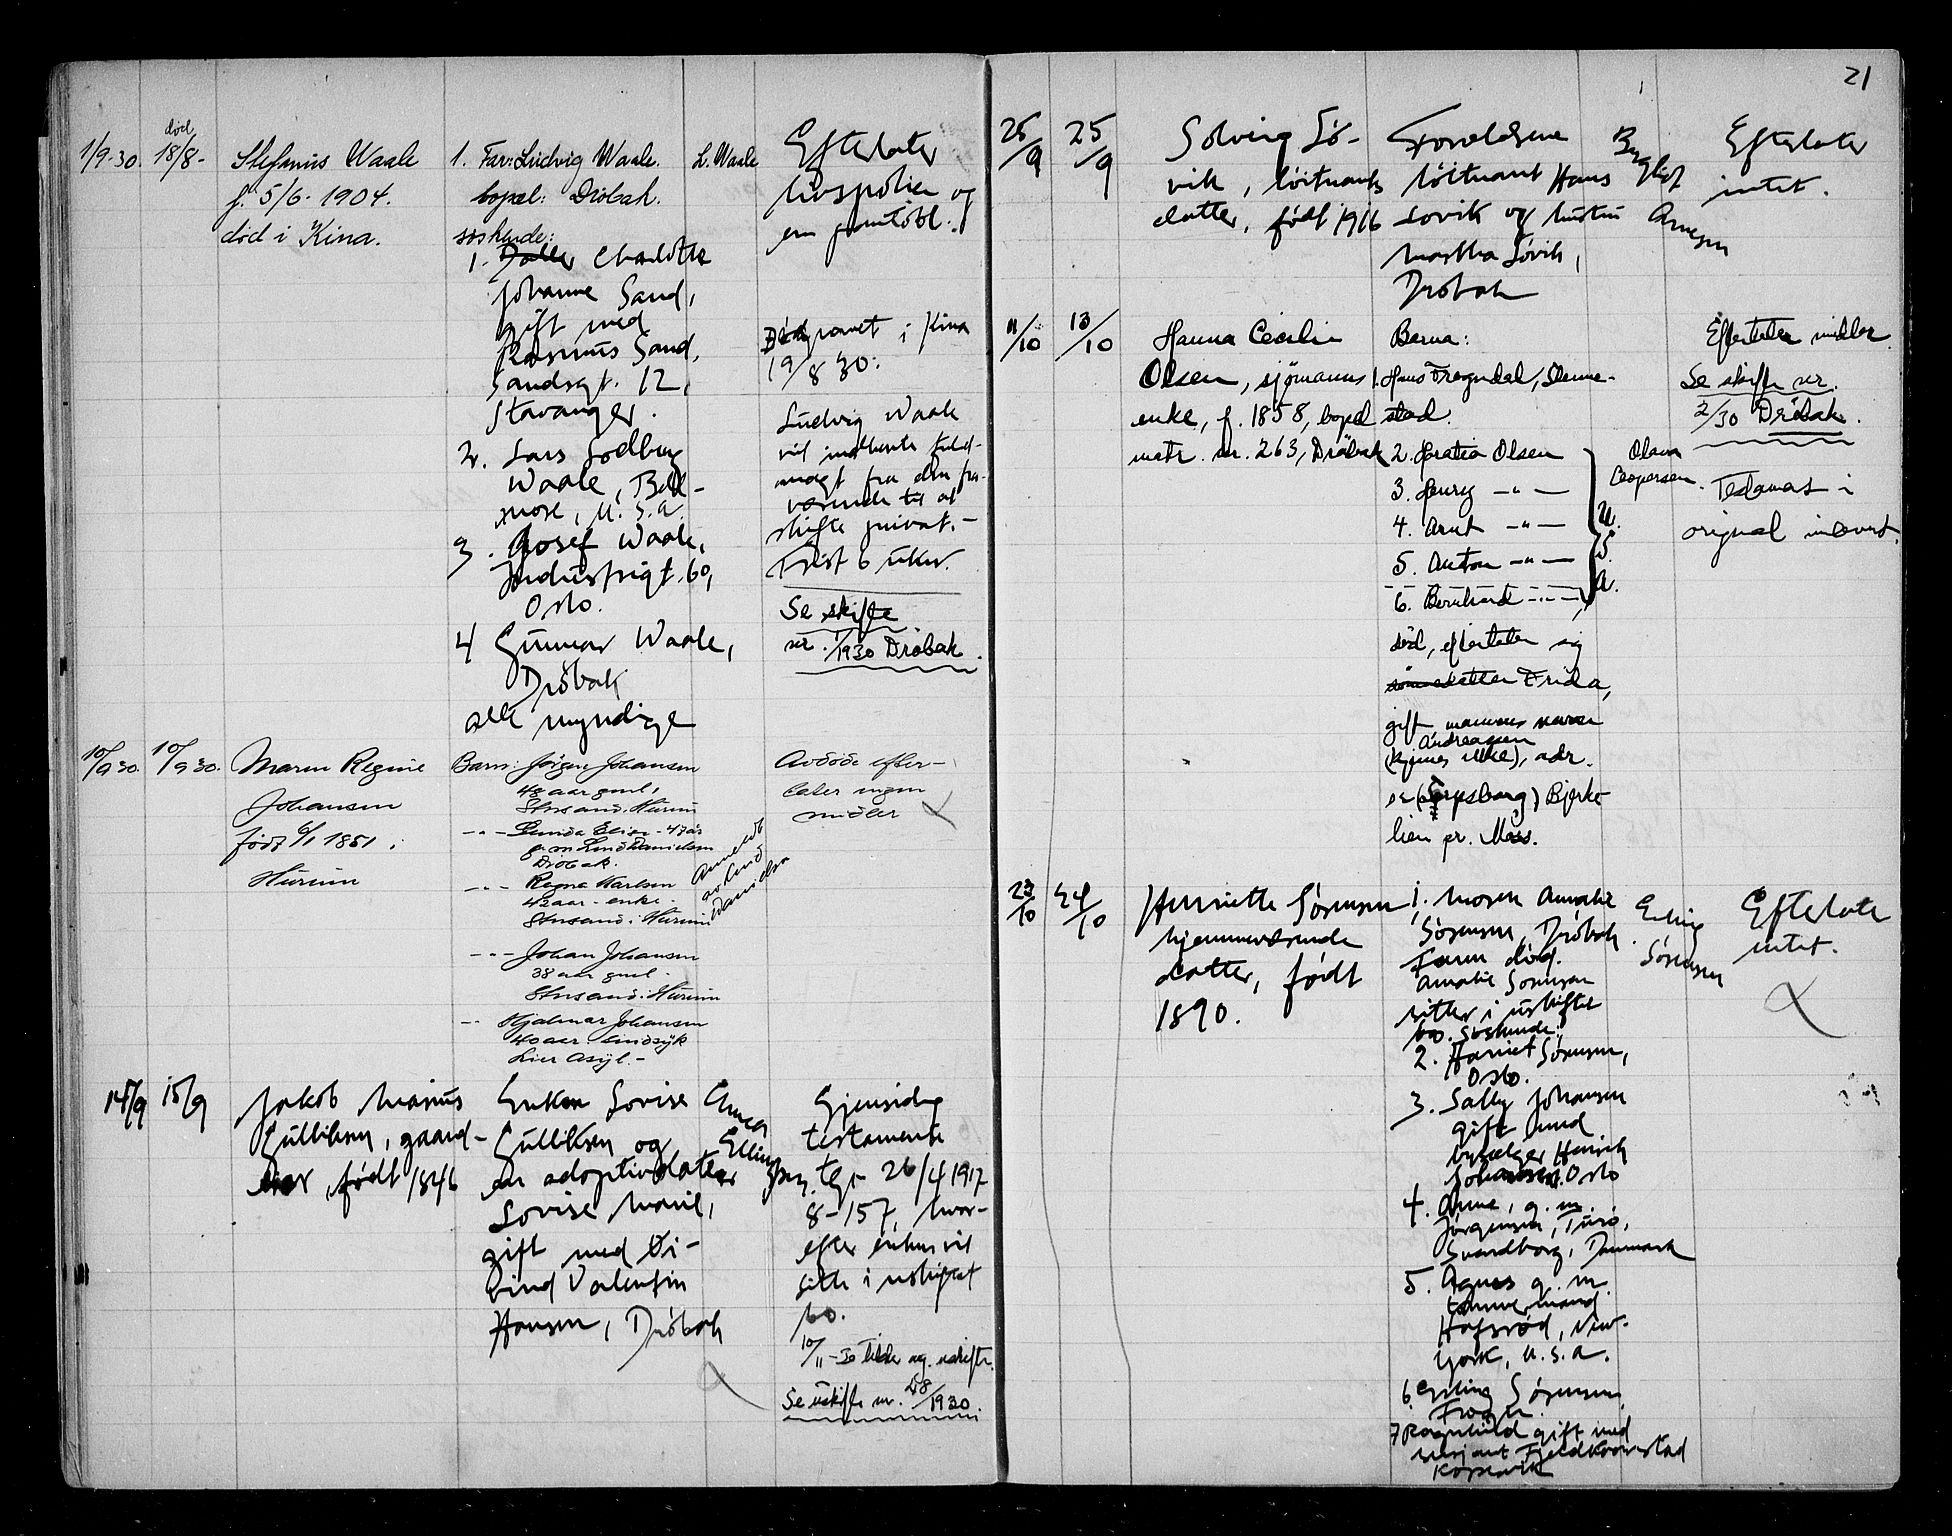 21
1/9.30.
død
18/8-
Stefanus Waale
f. 5/6. 1904.
død i Kina.
1. Far: Ludvig Waale.
bopæl: Drøbak.
søskende:
1. Charlotte
Johanne Sand,
gift med
Rasmus Sand,
Sandsgt. 12,
Stavanger.
2. Lars Sodberg
Waale,
U.S.A.
3. Josef Waale,
Industrigt. 60,
Oslo.
4 Gunnar Waale,
Drøbak
alle myndige
L. Waale
Efterlater
livspolise og
en
i Kina
19/8 30.
Ludvig Waale
vil indhente fuld-
magt fra den fra-
værende til at
skifte privat. -
Frist 6 uker.
Se skifte
nr. 1/1930 Drøbak.
10/9 30.
10/9 30.
Maren Regine
Johansen
født 6/1 1851,
Hurum
Barn: Jørgen Johansen
48 aar gml,
Storsand. Hurum
-"- Elise - 47 år
g. m Lund Danielsen
Drøbak.
-"- Ragna Karlsen
42 aar - enke -
Storsand i Hurum
-"- Johan Johansen
38 aar gml -
Storsand i Hurum
-"- Hjalmar Johansen
40 aar. sindsyk
Lier Asyl. -
Anmeldt
av Lund
Danielsen
Avdøde efter-
later ingen
midler
14/9
15/9
Jakob Marius
Gulliksen, gaard-
eier, født 1846
Enken Lovise
Gulliksen og
en adoptivdatter
Lovise Marie,
gift med Ei-
vind Valentin
Hansen, Drøbak
Anna
Ellingsen.
Gjensidig
testamente
tgl. 26/4 1917
8-157, hvor-
efter enken vil
sitte i uskiftet
bo.
10/11-30 ag. uskifte.
Se uskifte nr. 48/1930.
26/9
25/9
Solveig Sø-
vik, løitnants
datter, født 1916
Forældrene
løitnant Hans
Søvik og hustru
Martha Søvik,
Drøbak
Bergljot
Arnesen
Efterlater
intet.
11/10
13/10
Hanna Cecilie
Olsen, sjømanns
enke, f. 1858, bopæl
matr. nr. 263, Drøbak
Barna:
1. Hans Fregndal, Slemme-
stad.
2. Horatia Olsen
3. Henry -"-
4. Arnt -"-
5. Anton -"-
6. Bernhard -"-,
U.
S.
A.
død, efterlater sig
datter Frida,
gift mannens navn
Andreassen
(kjennes ikke), adr.
er (Sarpsborg) Bjerke-
lien pr. Moss.
Olava
Caspersen.
Efterlater midler
Se skifte nr.
2/30 Drøbak.
Testament i
original innlevert.
23/10
24/10
Henriette Sørensen
hjemmeværende
datter, født
1890.
1. Moren Amalie
Sørensen, Drøbak
Faren død.
Amalie Sørensen
sitter i uskiftet
bo. Søskende:
2. Harriet Sørensen,
Oslo.
3. Sally Johansen
gift med
byselger Henrik
Johansen, Oslo
4. Anne, g. m.
Jørgensen, Turø,
Svendborg, Danmark
5. Agnes g. m.
tømmermand
Hafsrød, New-
York, U.S.A.
6. Erling Sørensen
Frogn.
7 Ragnhild gift med
sersjant Fjeldkaarstad
Kopervik
Erling
Sørensen
Efterlater
intet.